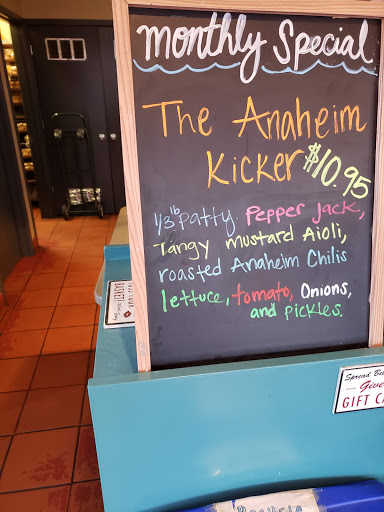 monthly Special
The Anaheim
Kicker $10.95
1/3 lb patty, Pepper Jack,
Tangy mustard Aioli,
roasted Anaheim Chilis
lettuce, tomato, Onions,
and pickles.
BASKET!
Spread
Give
GIFT CA